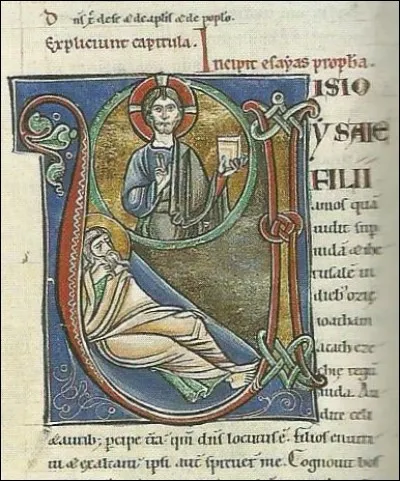 de se & de aplis & de poplo.
Expliciunt capitula.
Incipit esayas propha.
VISIO
YSAIE
FILII
amos quā
uidit sup
iudā & ihe
rusalē in
dieb' ozię
ioatham
achaz eze
chię regū
iuda. Au
dite celi
& aurib; pcipe t̄ra qm̄ dn̄s locutus ē. filios enutri
ui & exaltaui ipsi aut̄ spreuer̄ me. Cognouit bos